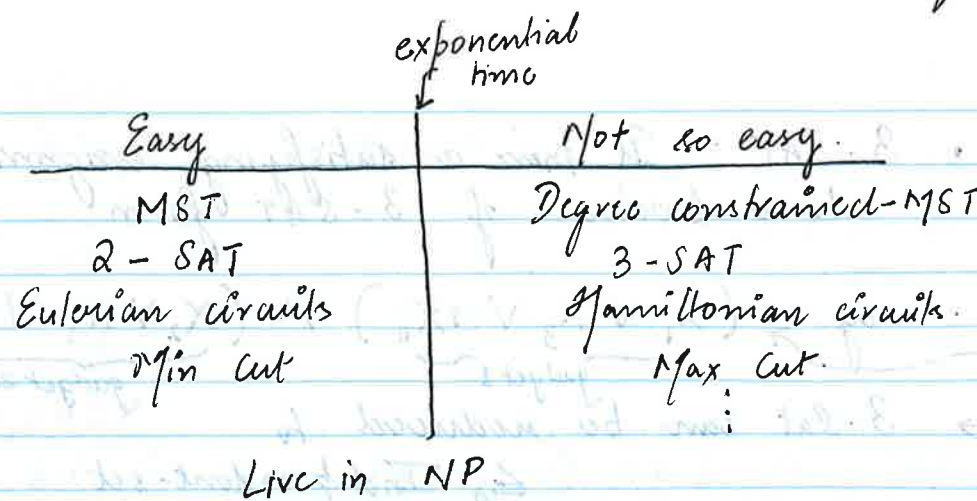 exponential
time
Easy Not so easy.
MST Degree constrained-MST
2 - SAT 3 - SAT
Eulerian circuits Hamiltonian circuits.
Min Cut Max Cut.
Live in NP